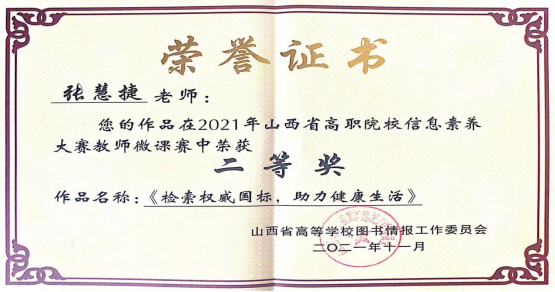 荣誉证书
张慧捷 老师：
您的作品在2021年山西省高职院校信息素养
大赛教师微课赛中荣获
二等奖
作品名称：《检索权威国标，助力健康生活》
山西省高等学校图书情报工作委员会
二〇二一年十一月